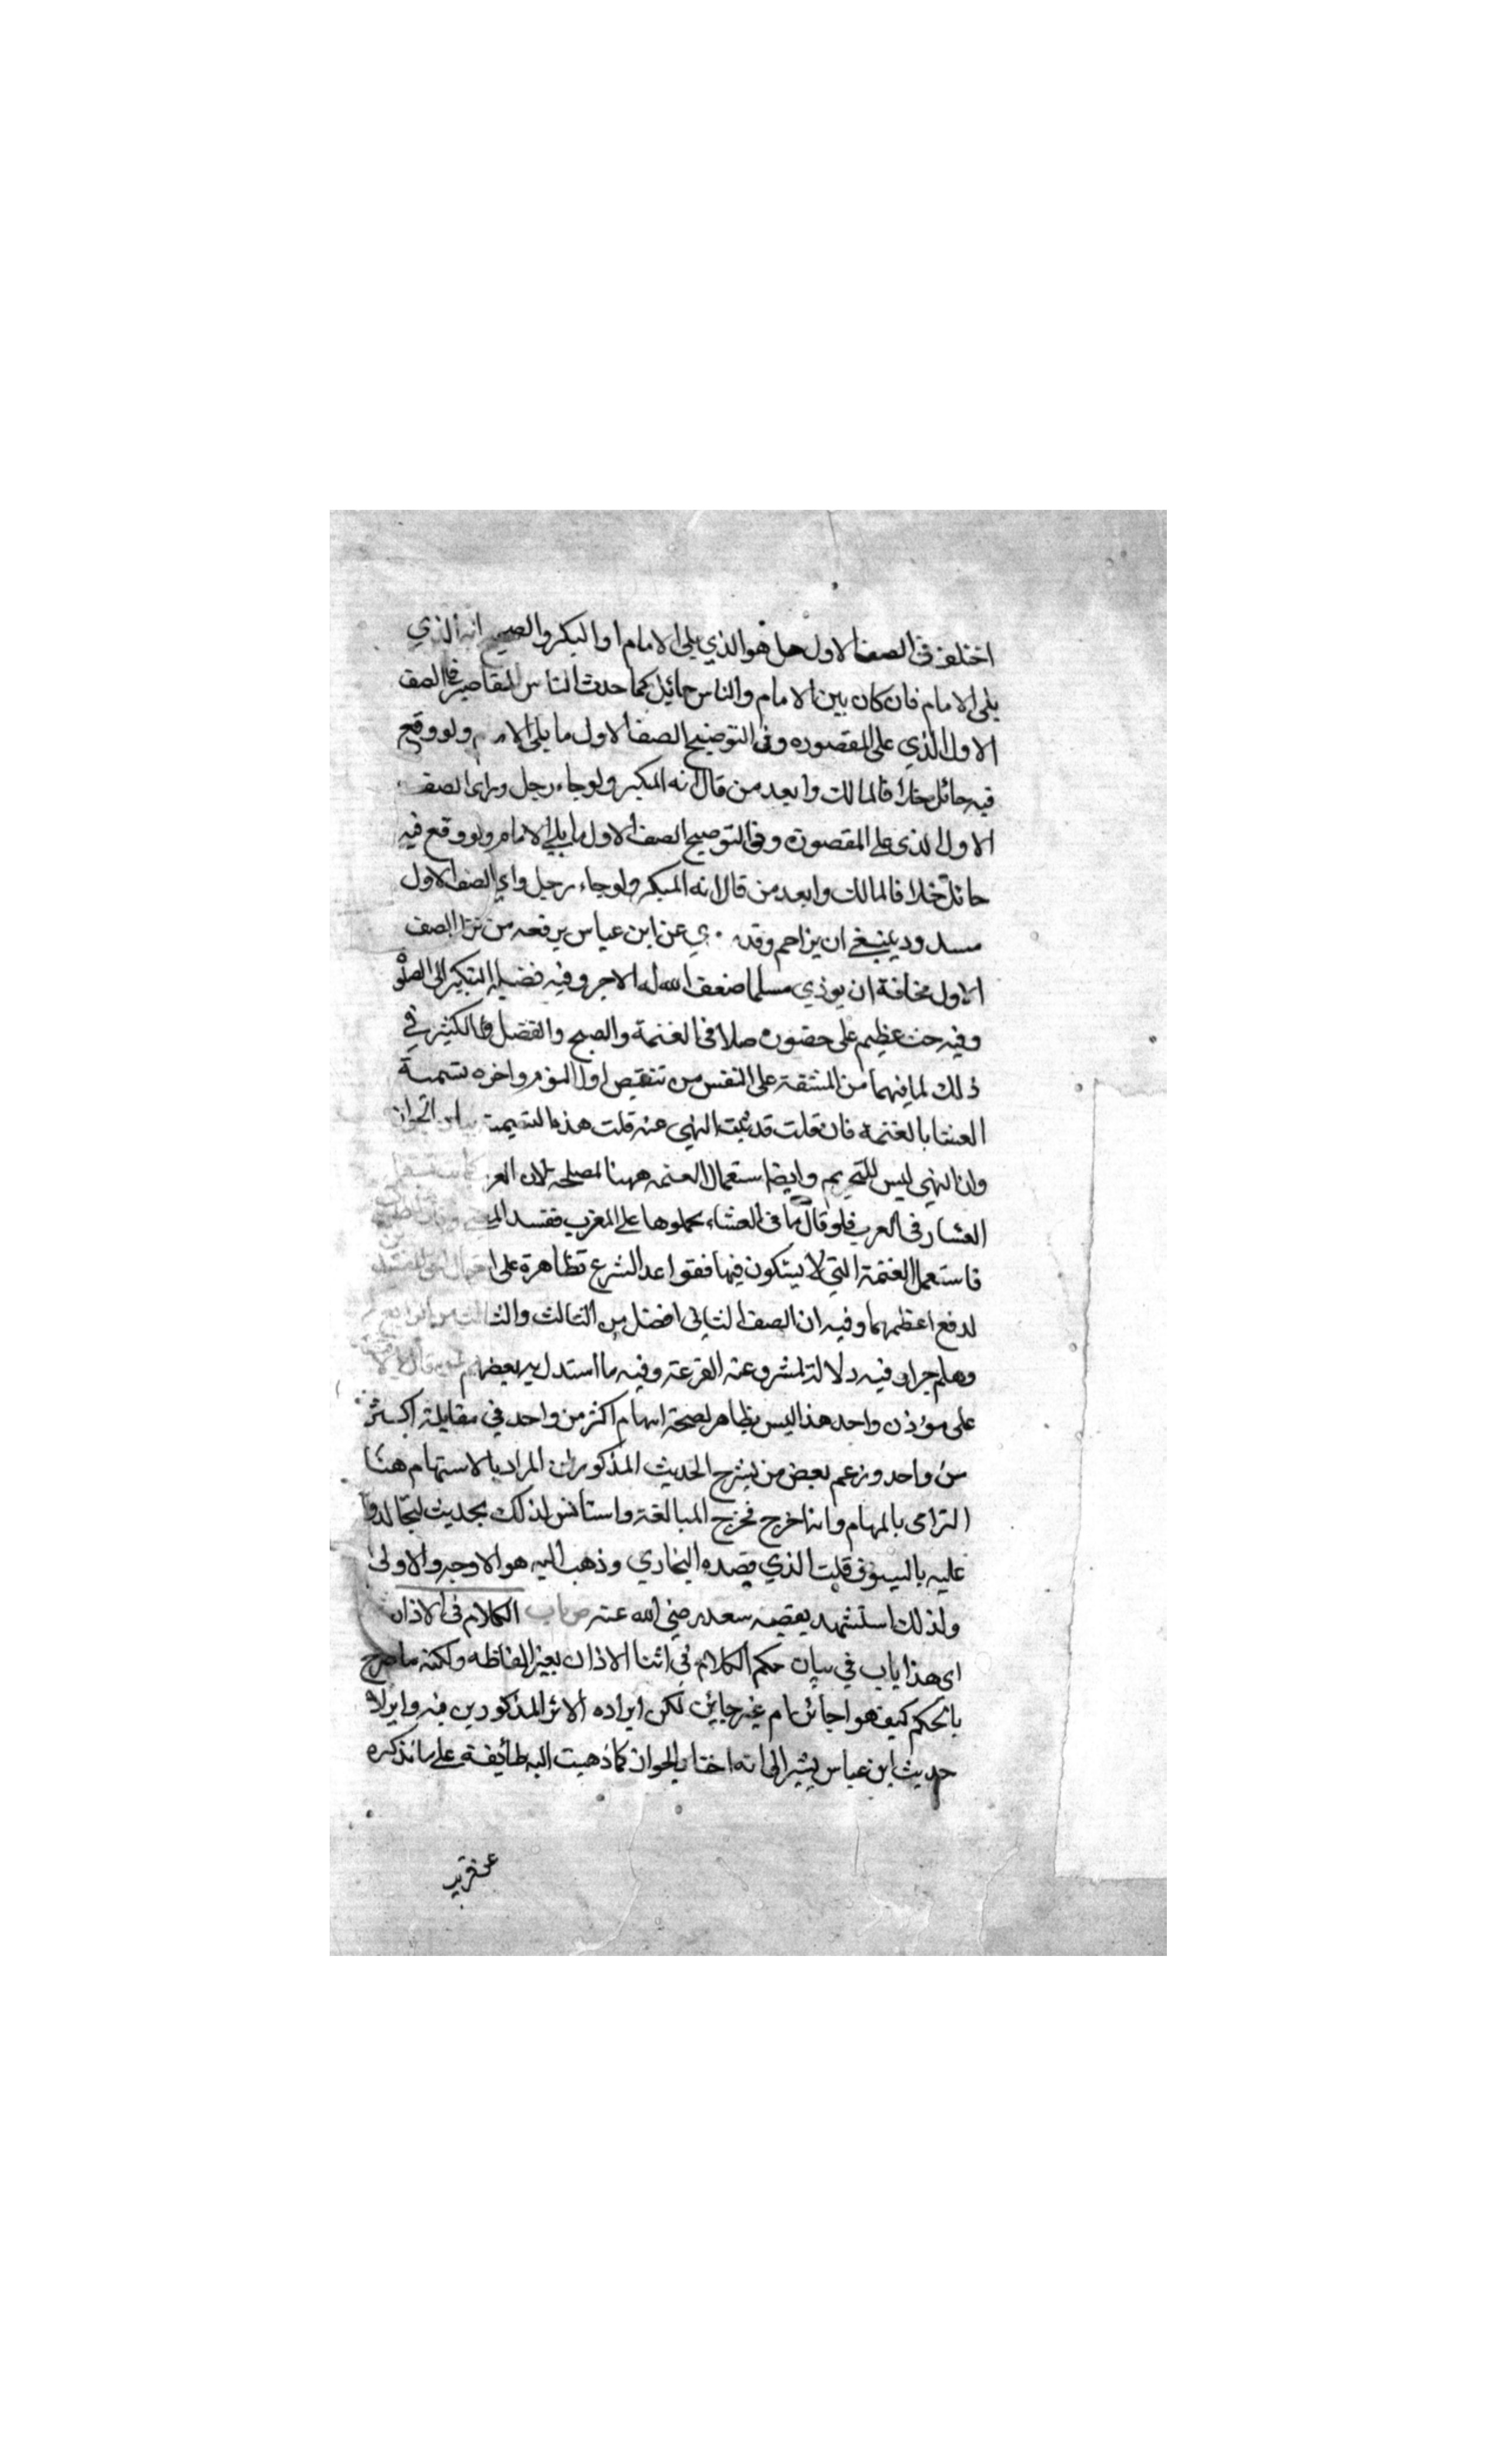 اختلف في الصف الاول هل هو الذي يلي الامام او المبكر والصحيح انه الذي
يلي الامام فان كان بين الامام والناس حائل كما حدث الناس المقاصير فالصف
الاول الذي على المقصوره وفي التوضيح الصف الاول ما يلي الامام ولو وقع
فيه حائل خلافا لمالك وابعد من قال انه المبكر ولو جاء رجل وراى الصف
الاول الذي على المقصورة وفي التوضيح الصف الاول ما يلي الامام ولو وقع فيه
حائل خلافا لمالك وابعد من قال انه المبكر ولو جاء رجل وراي الصف الاول
مسدود ينبغي ان يزاحم وقد روي عن ابن عباس يرفعه من ترا الصف
الاول مخافة ان يوذي مسلما ضعف الله له الاجر وفيه فضيلة التبكير الى الصلوة
وفيه حث عظيم على حضوره صلاة الغتمة والصبح والفضل الكثير في
ذلك لما فيهما من المشقة على النفس من تنقيص اول النوم واخره تسمية
العشا بالغتمة فان قلت قد ثبت النهي عنه قلت هذه التسمية بيان الجواز
وان النهي ليس للتحريم وايضا استعمال العتمه ههنا لمصلحة لان العر
العشا في العرب فلو قال ما في العشاء لحملوها على المغرب ففسد
فاستعمل الغتمة التي لا يشكون فيها فقواعد الشرع تظاهرة على
لدفع اعظمهما وفيه ان الصف الثاني افضل من الثالث والثالث من الرابع
وهلم جرا وفيه دلالة لمشروعية القرعة وفيه ما استدل به بعضهم
على مؤذن واحد هذا ليس بظاهر لصحة اسهام اكثر من واحد في مقابلة اكثر
من واحد وزعم بعض من يشرح الحديث المذكور ان المراد بالاستهام هنا
الترامى بالسهام وانه اخرج مخرج المبالغة واستانس لذلك بحديث لتجالدوا
عليه بالسيوف قلت الذي قصده البخاري وذهب اليه هو الاوجه والاولى
ولذلك استشهد بقصة سعد رضي الله عنه ص باب الكلام في الاذان
اى هذا باب في بيان حكم الكلام في اثنا الاذان بغير الفاظه ولكنه ما صرح
بالحكم كيف هو اجائز ام غير جائز لكن ايراده الاثر المذكورين فيه وايراده
حديث ابن عباس يشير الى انه اختار الجواز كما ذهبت اليه طائفة على ما نذكره
عن قريب